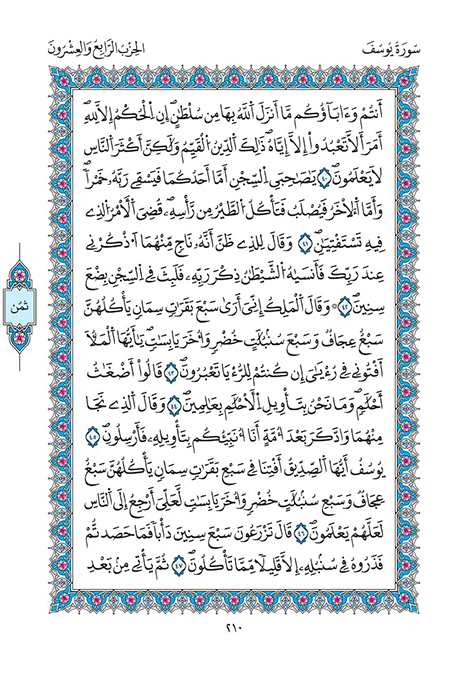 سُورَةُ يُوسُفَ
الحِزْبُ الرَّابِعُ وَالعِشْرُونَ
أَنتُمْ وَءَابَآؤُكُم مَّآ أَنزَلَ اَ۬للَّهُ بِهَا مِن سُلْطَٰنٍۖ اِنِ اِ۬لْحُكْمُ إِلَّا لِلهِۖ
أَمَرَ أَلَّا تَعْبُدُوٓاْ إِلَّآ إِيَّاهُۖ ذَٰلِكَ اَ۬لدِّينُ اُ۬لْقَيِّمُ وَلَٰكِنَّ أَكْثَرَ اَ۬لنَّاسِ
لَا يَعْلَمُونَۖ ٤٠ يَٰصَٰحِبَيِ اِ۬لسِّجْنِ أَمَّآ أَحَدُكُمَا فَيَسْقِے رَبَّهُۥ خَمْراٗۖ
وَأَمَّا اَ۬لَاخَرُ فَيُصْلَبُ فَتَاكُلُ اُ۬لطَّيْرُ مِن رَّأْسِهِۦۖ قُضِيَ اَ۬لَامْرُ اُ۬لذِے
فِيهِ تَسْتَفْتِيَٰنِۖ ٤١ وَقَالَ لِلذِے ظَنَّ أَنَّهُۥ نَاجٖ مِّنْهُمَا اَ۟ذْكُرْنِے
عِندَ رَبِّكَ فَأَنس۪يٰهُ اُ۬لشَّيْطَٰنُ ذِكْرَ رَبِّهِۦ فَلَبِثَ فِے اِ۬لسِّجْنِ بِضْعَ
سِنِينَۖ ٤٢ ۞ وَقَالَ اَ۬لْمَلِكُ إِنِّيَ أَر۪يٰ سَبْعَ بَقَرَٰتٖ سِمَانٖ يَاكُلُهُنَّ
سَبْعٌ عِجَافٞ وَسَبْعَ سُنۢبُلَٰتٍ خُضْرٖ وَأُخَرَ يَابِسَٰتٖۖ يَٰٓأَيُّهَا اَ۬لْمَلَأُ
اَ۬فْتُونِے فِے رُءْيٰ۪يَ إِن كُنتُمْ لِلرُّءْي۪ا تَعْبُرُونَۖ ٤٣ قَالُوٓاْ أَضْغَٰثُ
أَحْلَٰمٖۖ وَمَا نَحْنُ بِتَاوِيلِ اِ۬لَاحْلَٰمِ بِعَٰلِمِينَۖ ٤٤ وَقَالَ اَ۬لذِے نَجَا
مِنْهُمَا وَادَّكَرَ بَعْدَ أُمَّةٍ اَنَآ أُنَبِّئُكُم بِتَاوِيلِهِۦ فَأَرْسِلُونِۖ ٤٥
يُوسُفُ أَيُّهَا اَ۬لصِّدِّيقُ أَفْتِنَا فِے سَبْعِ بَقَرَٰتٖ سِمَانٖ يَاكُلُهُنَّ سَبْعٌ
عِجَافٞ وَسَبْعِ سُنۢبُلَٰتٍ خُضْرٖ وَأُخَرَ يَابِسَٰتٖ لَّعَلِّيَ أَرْجِعُ إِلَى اَ۬لنَّاسِ
لَعَلَّهُمْ يَعْلَمُونَۖ ٤٦ قَالَ تَزْرَعُونَ سَبْعَ سِنِينَ دَأْباٗ فَمَا حَصَدتُّمْ
فَذَرُوهُ فِے سُنۢبُلِهِۦٓ إِلَّا قَلِيلاٗ مِّمَّا تَاكُلُونَۖ ٤٧ ثُمَّ يَاتِے مِنۢ بَعْدِ
ثُمُن
٢١٠